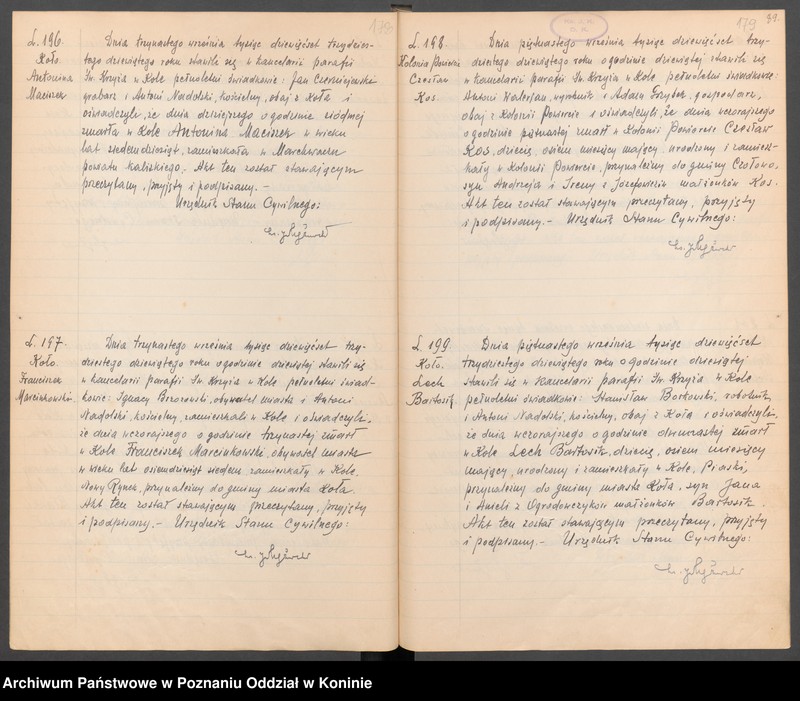 138
L. 196.
Koło.
Antonina
Maciszek
Dnia trzynastego września tysiąc dziewięćset trzydzies-
tego dziewiątego roku stawili się w kancelarii parafii
Św. Krzyża w Kole pełnoletni świadkowie: Jan
grabarz i Antoni Nadolski, kościelny, obaj z Koła i
oświadczyli, że dnia dzisiejszego o godzinie siódmej
zmarła w Kole Antonina Maciszek w wieku
lat siedemdziesiąt, zamieszkała w Marchwaczu
powiatu kaliskiego. Akt ten został stawającym
przeczytany, przyjęty i podpisany. –
Urzędnik Stanu Cywilnego:
L. 197.
Koło.
Franciszek
Marcinkowski.
Dnia trzynastego września tysiąc dziewięćset trzy-
dziestego dziewiątego roku o godzinie dziewiątej stawili się
w kancelarii parafii Św. Krzyża w Kole pełnoletni świad-
kowie: Ignacy Brzozowski, obywatel miasta i Antoni
Nadolski, kościelny, zamieszkali w Kole i oświadczyli,
że dnia wczorajszego o godzinie trzynastej zmarł
w Kole Franciszek Marcinkowski, obywatel miasta
w wieku lat osiemdziesiąt siedem zamieszkały w Kole.
Nowy Rynek, przynależny do gminy miasta Koła.
Akt ten został stawającym przeczytany, przyjęty
i podpisany. – Urzędnik Stanu Cywilnego:
179
L. 198.
Kolonia Powiercie
Czesław
Kos.
Dnia piętnastego września tysiąc dziewięćset trzy-
dziestego dziewiątego roku o godzinie dziewiątej stawili się
w kancelarii parafii Św. Krzyża w Kole pełnoletni świadkowie:
Antoni Walerjan, wyrobnik i Adam Grzybek, gospodarz,
obaj z Kolonii Powiercie i oświadczyli, że dnia wczorajszego
o godzinie piętnastej zmarł w Kolonii Powiercie Czesław
Kos, dziecię, osiem miesięcy mający, urodzony i zamiesz-
kały w Kolonii Powiercie, przynależny do gminy Czołowo,
syn Andrzeja i Ireny z Józefowiczów małżonków Kos.
Akt ten został stawającym przeczytany, przyjęty
i podpisany. – Urzędnik Stanu Cywilnego:
L. 199.
Koło.
Lech
Bartosik.
Dnia piętnastego września tysiąc dziewięćset
trzydziestego dziewiątego roku o godzinie dziewiątej
stawili się w kancelarii parafii Św. Krzyża w Kole
pełnoletni świadkowie: Stanisław Borkowski, robotnik
i Antoni Nadolski, kościelny, obaj z Koła i oświadczyli,
że dnia wczorajszego o godzinie dwunastej zmarł
w Kole Lech Bartosik, dziecię, osiem miesięcy
mający, urodzony i zamieszkały w Kole, Piaski,
przynależny do gminy miasta Koła, syn Jana
i Anieli z Ogrodowczyków małżonków Bartosik.
Akt ten został stawającym przeczytany, przyjęty
i podpisany. – Urzędnik Stanu Cywilnego:
Archiwum Państwowe w Poznaniu Oddział w Koninie